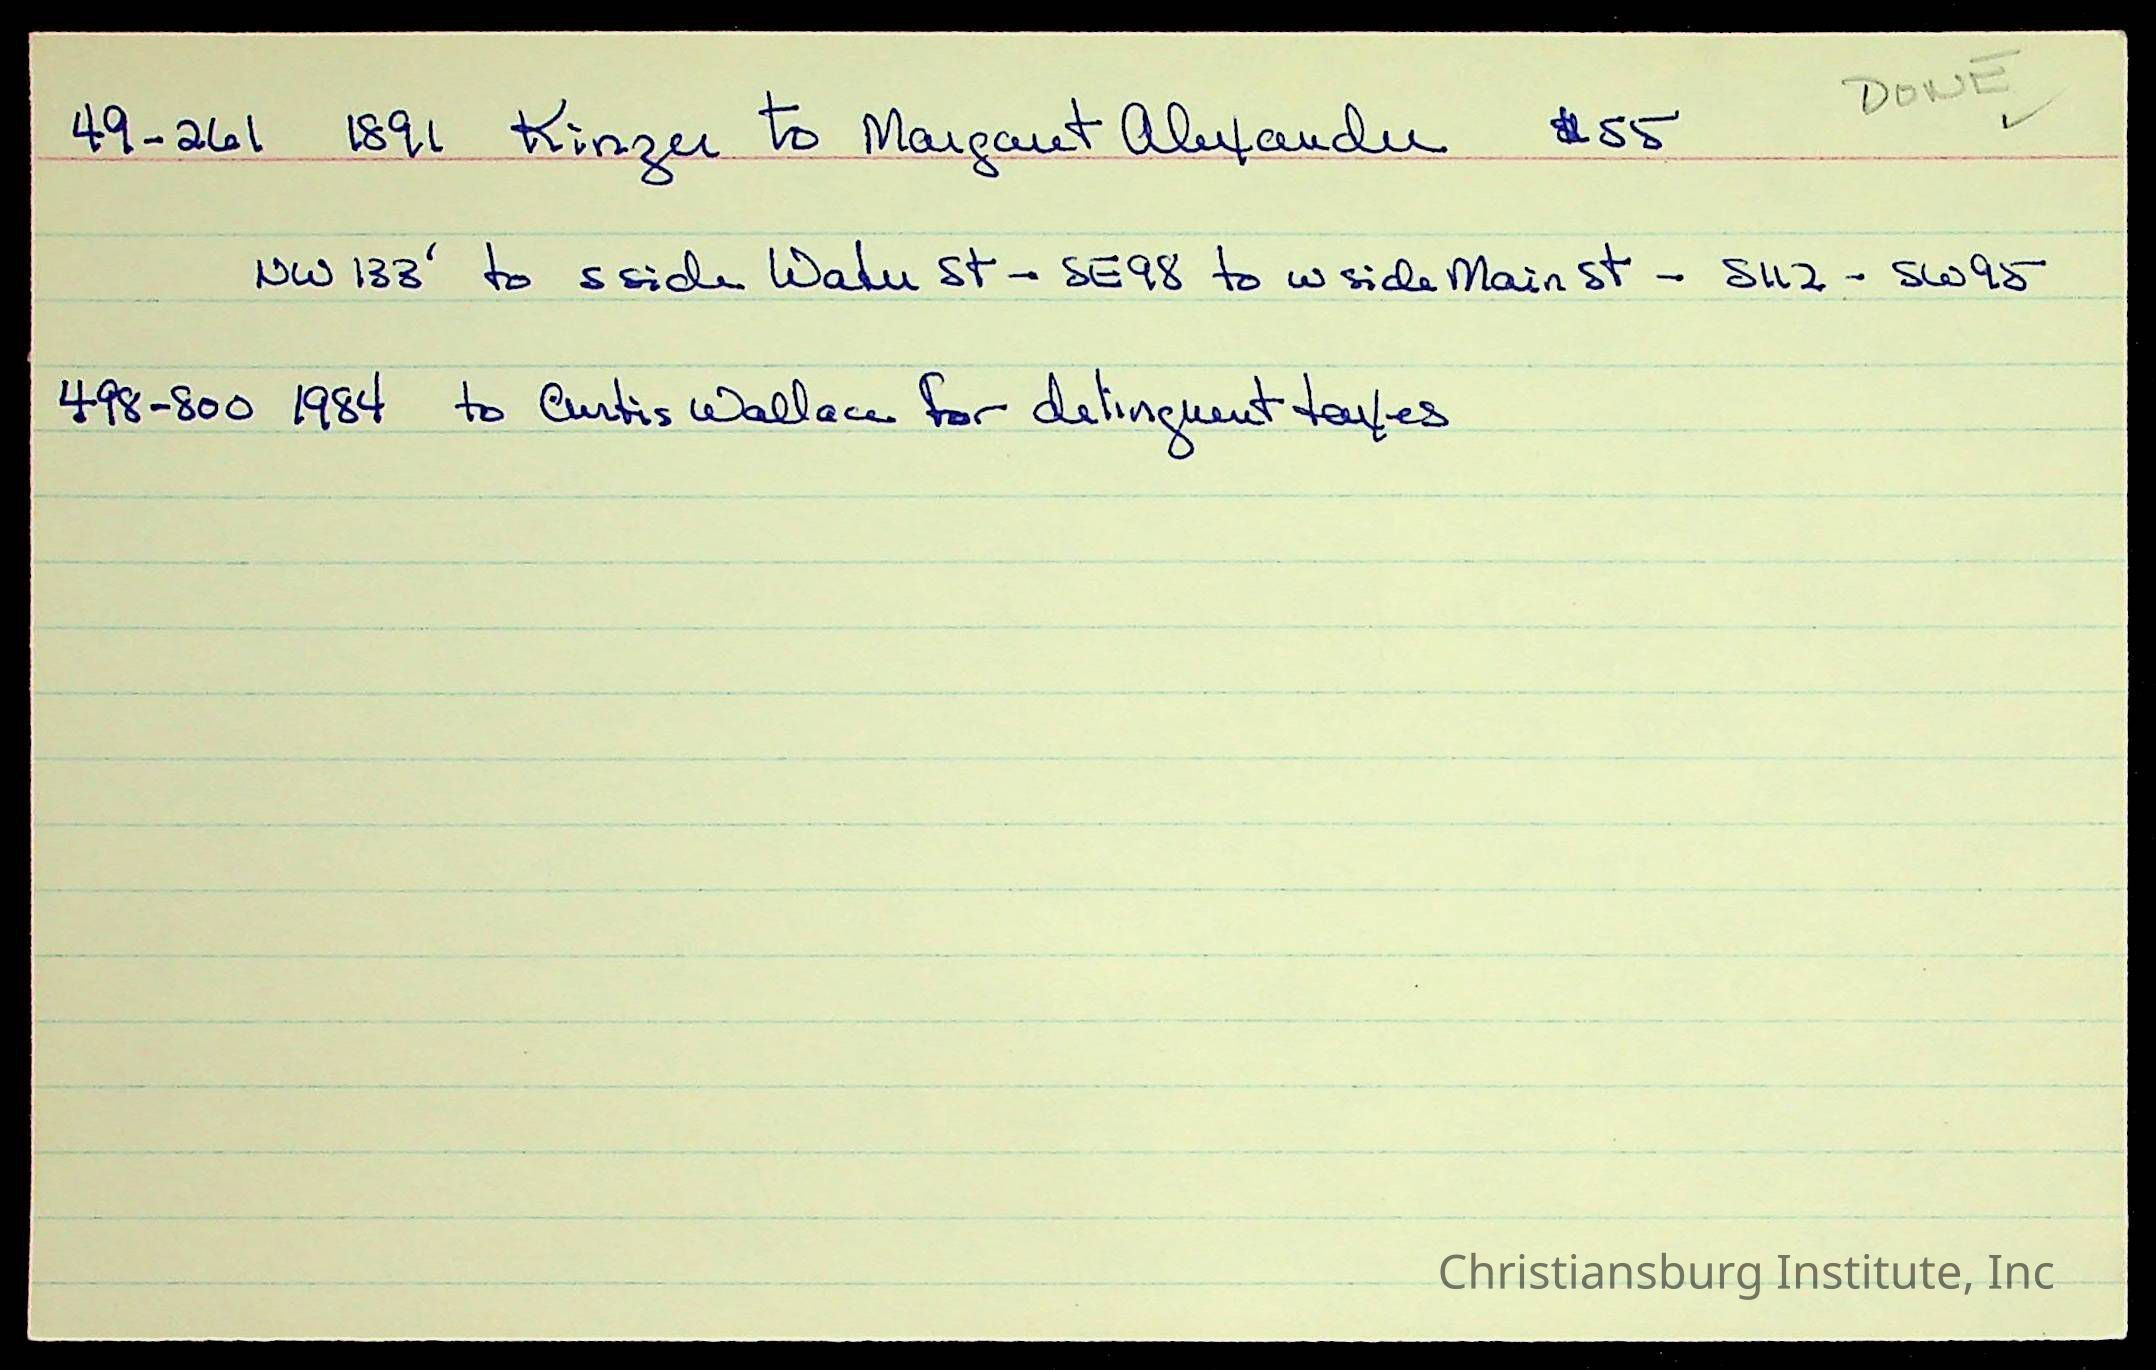 DONE ✓
49-261 1891 Kinzer to Margaret Alexander $55
NW 133' to s side Water St - SE98 to w side Main St - S112 - SW95
498-800 1984 to Curtis Wallace for delinquent taxes
Christiansburg Institute, Inc